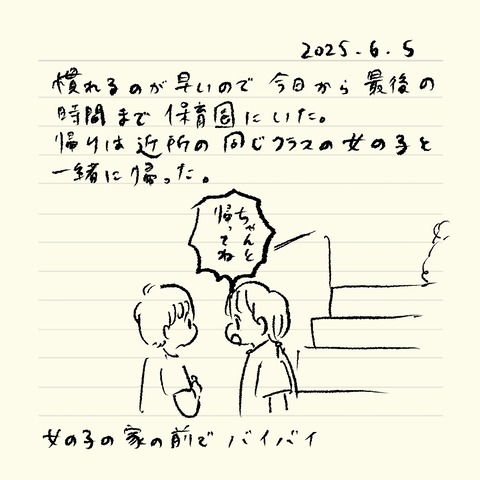 2025.6.5
慣れるのが早いので 今日から 最後の
時間まで 保育園にいた。
帰りは近所の同じクラスの女の子と
一緒に帰った。
ちゃんと
帰ってね
女の子の家の前で バイバイ